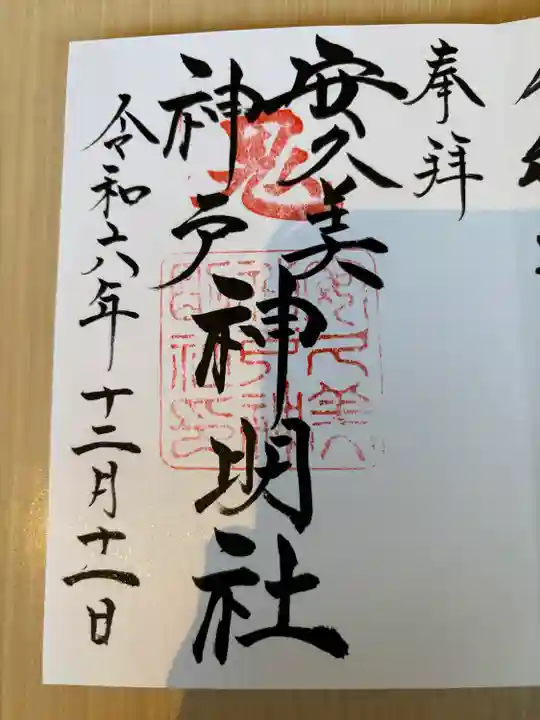 奉拝
安久美
神戸
神明社
鬼
令和六年十二月十一日